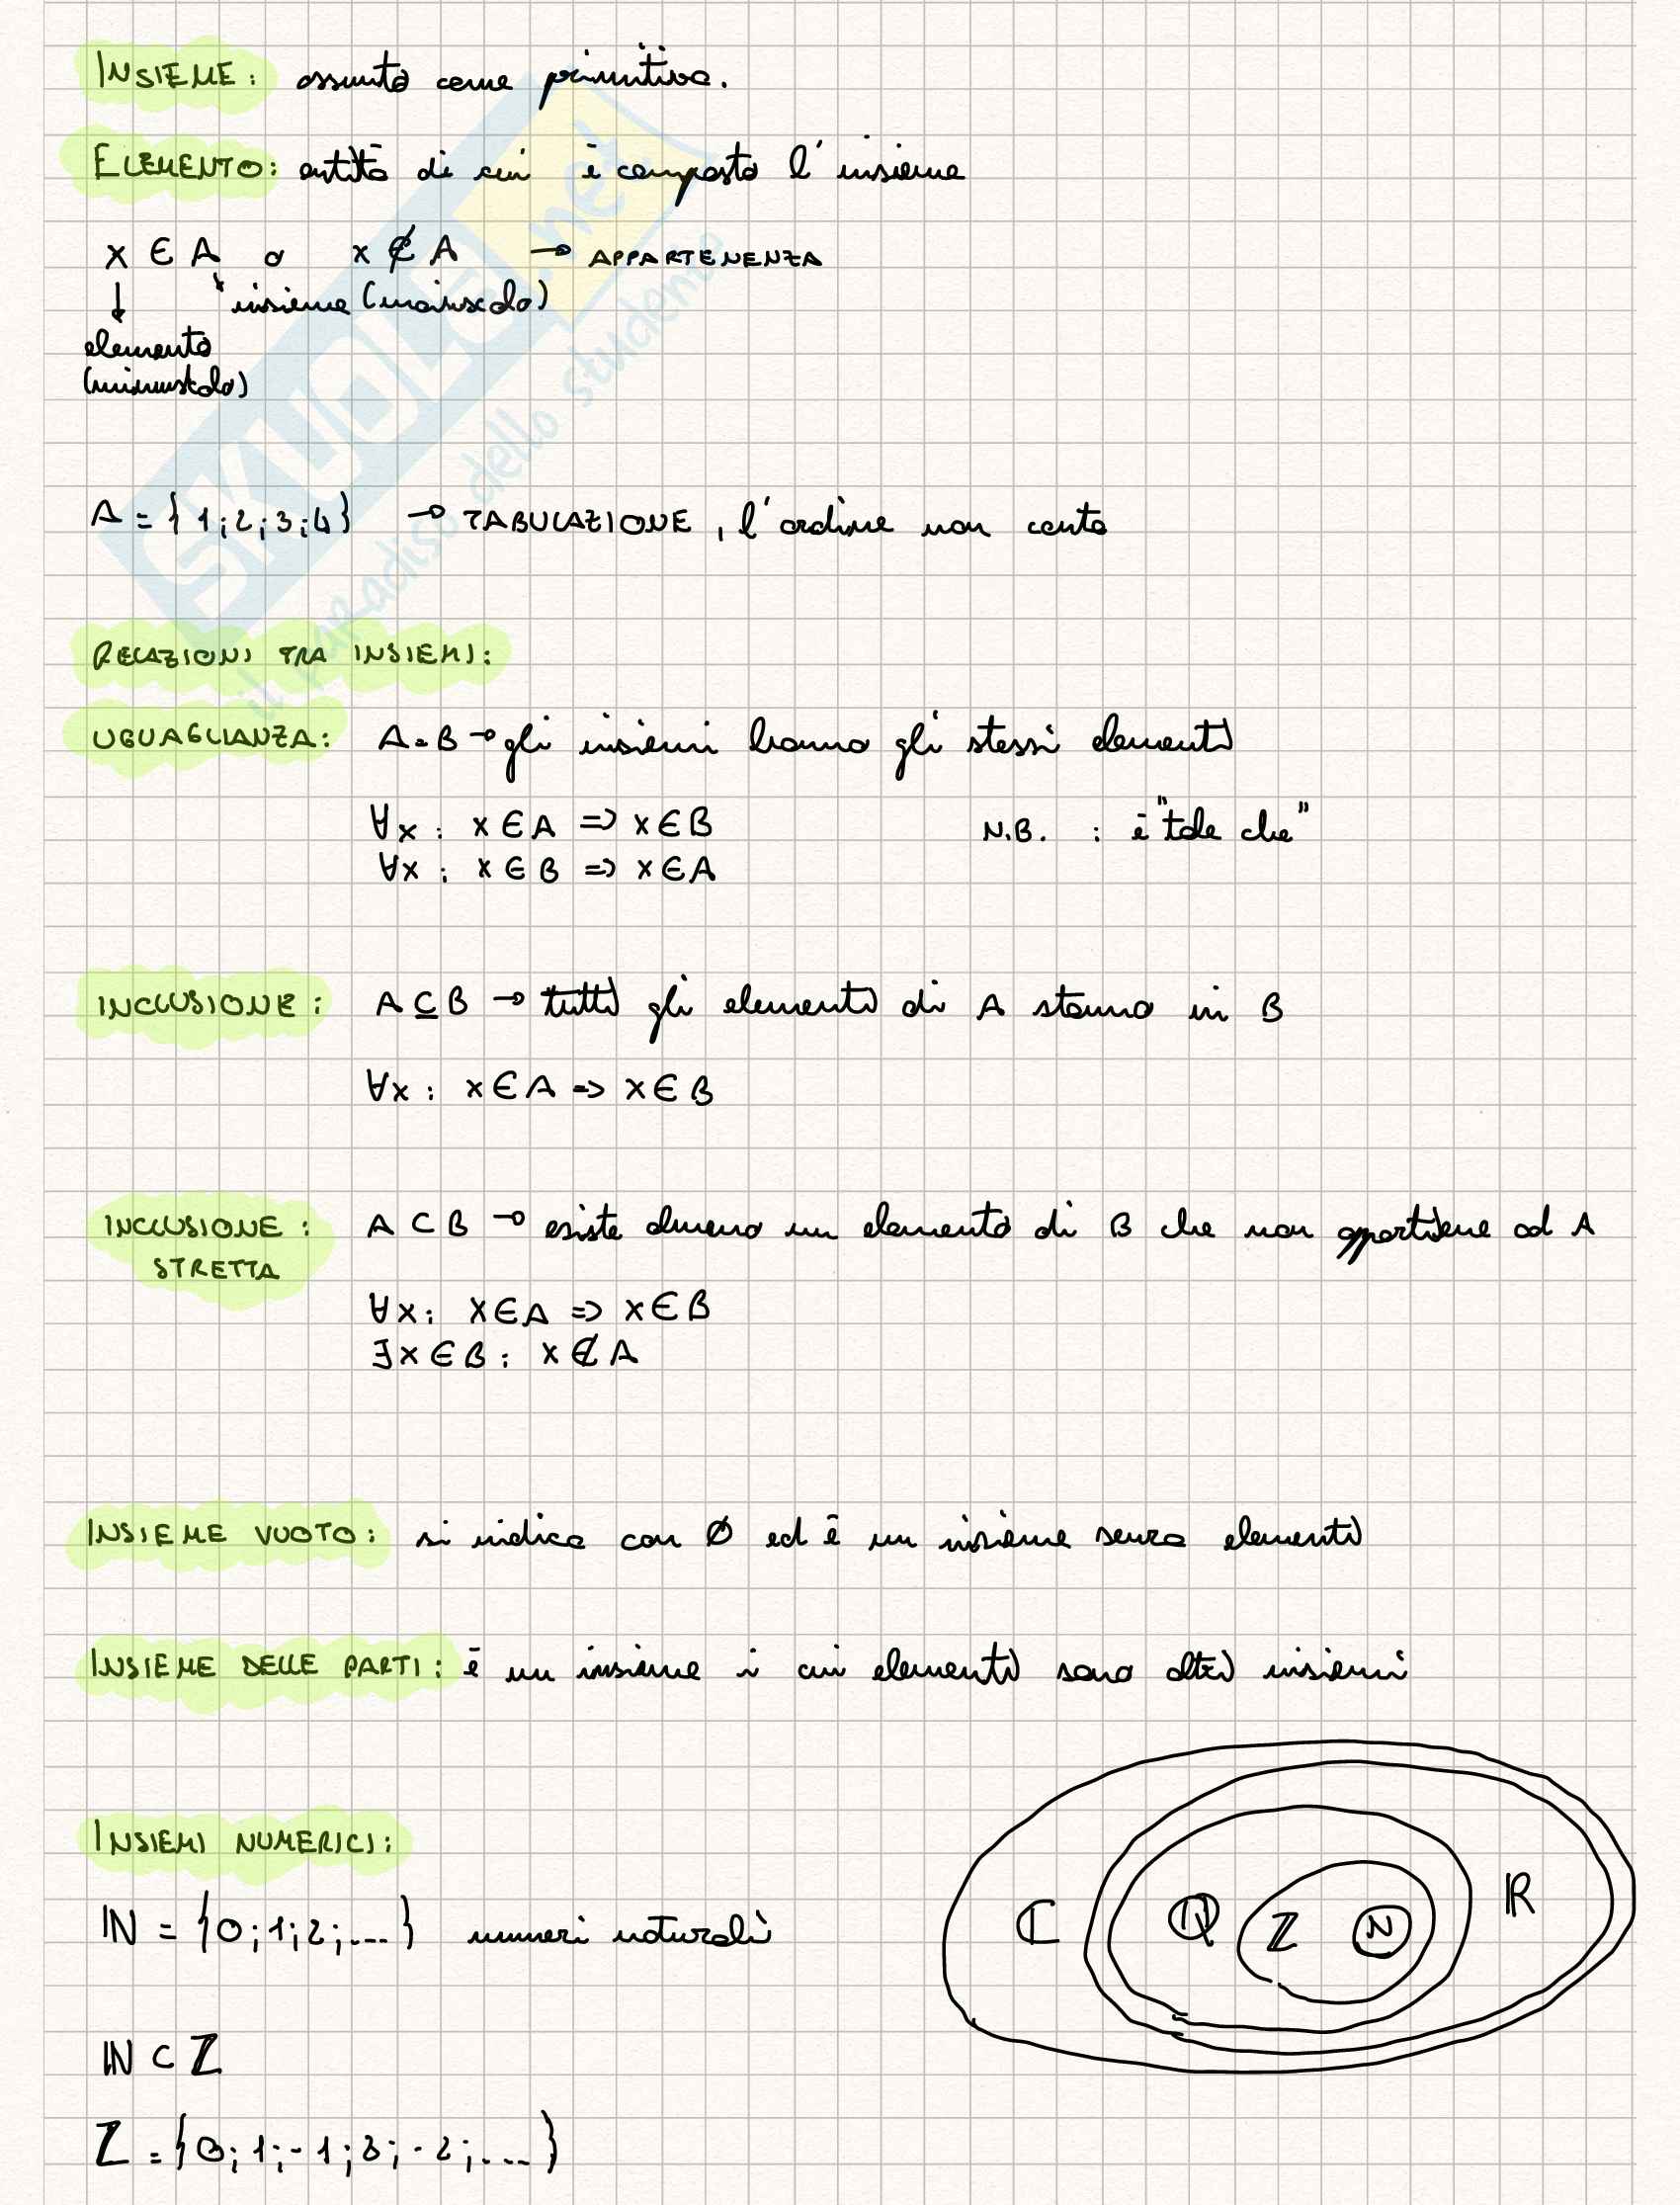 INSIEME: assunto come primitiva.
ELEMENTO: entità di cui è composto l'insieme
x ∈ A o x ∉ A → APPARTENENZA
↓ insieme (maiuscolo)
elemento
(minuscolo)
A = {1;2;3;4} → TABULAZIONE, l'ordine non conta
RELAZIONI TRA INSIEMI:
UGUAGLIANZA: A=B → gli insiemi hanno gli stessi elementi
∀x: x∈A ⇒ x∈B N.B. : è "tale che"
∀x: x∈B ⇒ x∈A
INCLUSIONE: A⊆B → tutti gli elementi di A stanno in B
∀x: x∈A ⇒ x∈B
INCLUSIONE: A⊂B → esiste almeno un elemento di B che non appartiene ad A
STRETTA
∀x: x∈A ⇒ x∈B
∃x∈B: x∉A
INSIEME VUOTO: si indica con Ø ed è un insieme senza elementi
INSIEME DELLE PARTI: è un insieme i cui elementi sono altri insiemi
INSIEMI NUMERICI:
ℕ = {0;1;2;...} numeri naturali
ℂ ℚ ℤ ℕ ℝ
ℕ⊂ℤ
ℤ = {0;1;-1;2;-2;....}
SKUOLA.net
il paradiso dello studente